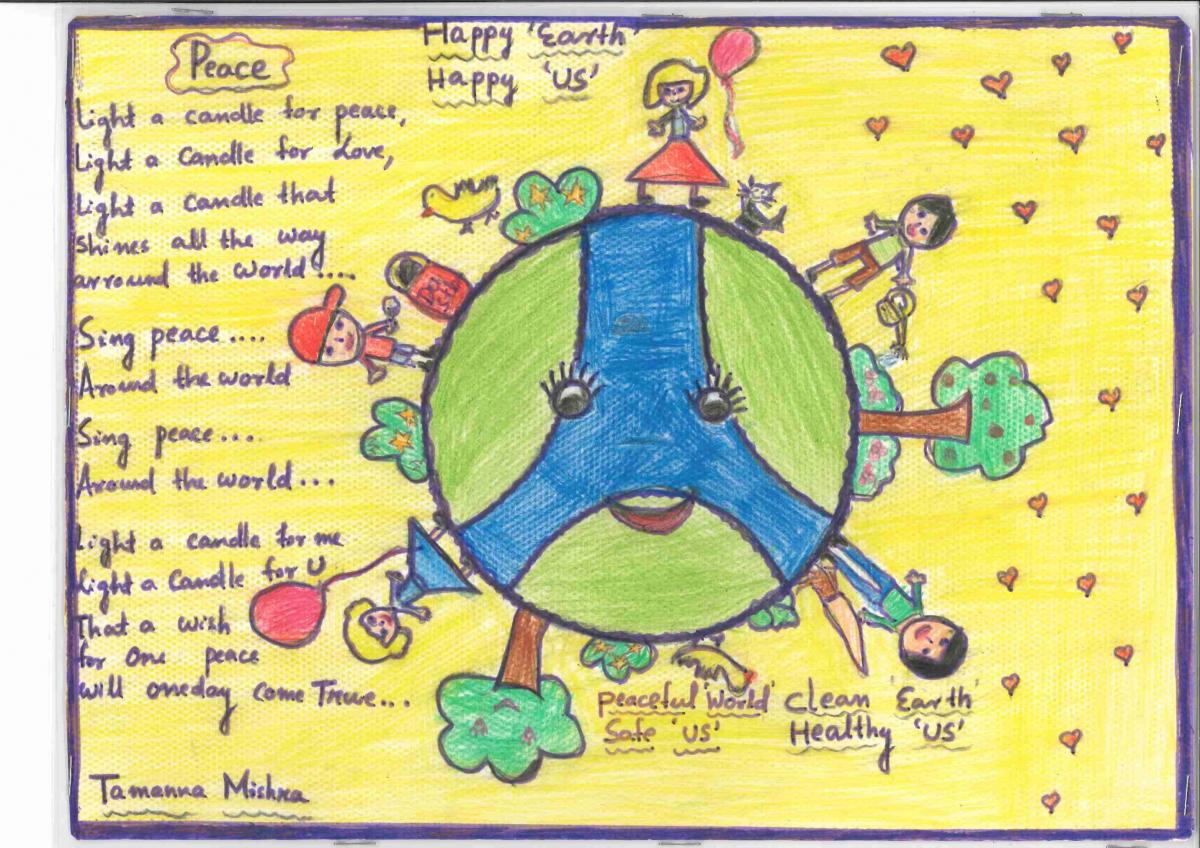 Peace
Light a candle for peace,
Light a Candle for Love,
Light a candle that
shines all the way
arround the world....
Sing peace....
Around the world
Sing peace...
Around the world...
Light a candle for me
Light a Candle for U
That a wish
for One peace
will oneday come Treue...
Tamanna Mishra
Happy 'Earth'
Happy 'US'
Peaceful 'World'
Safe 'US'
Clean 'Earth'
Healthy 'US'